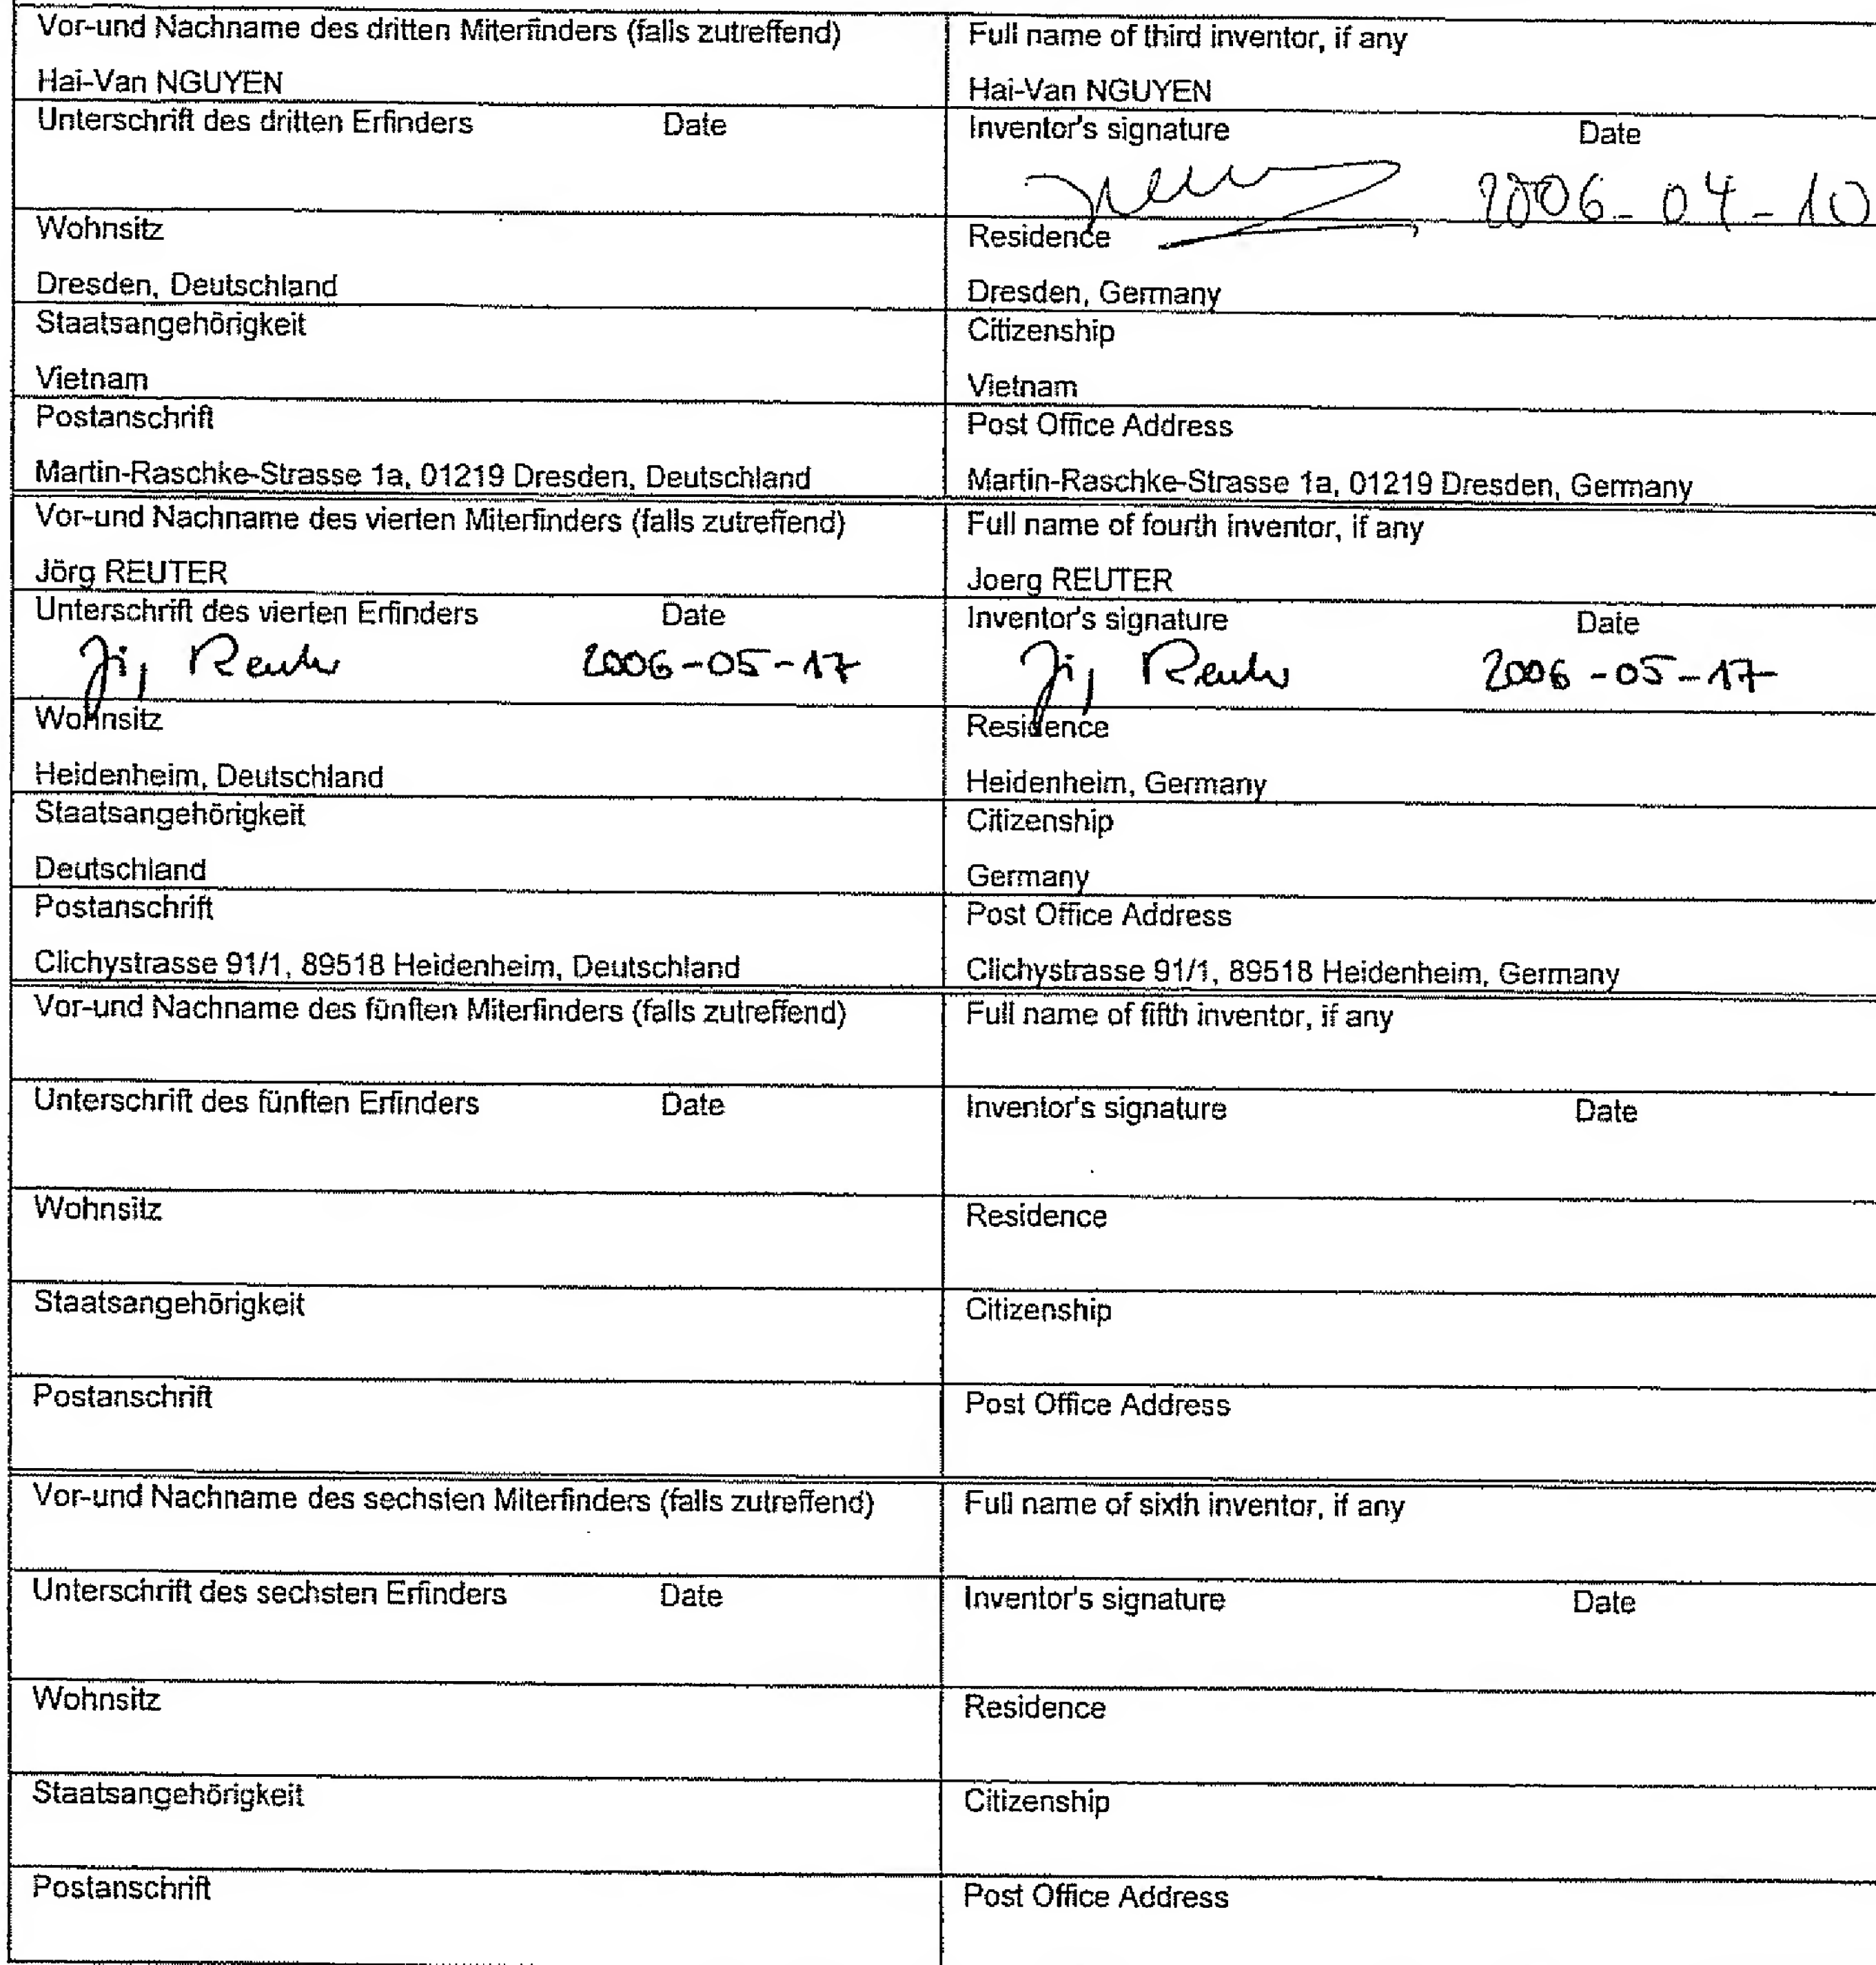 Vor-und Nachname des dritten Miterfinders (falls zutreffend)
Hai-Van NGUYEN
Full name of third inventor, if any
Hai-Van NGUYEN
Unterschrift des dritten Erfinders Date
Inventor's signature Date
2006-04-10
Wohnsitz
Dresden, Deutschland
Residence
Dresden, Germany
Staatsangehörigkeit
Vietnam
Citizenship
Vietnam
Postanschrift
Martin-Raschke-Strasse 1a, 01219 Dresden, Deutschland
Post Office Address
Martin-Raschke-Strasse 1a, 01219 Dresden, Germany
Vor-und Nachname des vierten Miterfinders (falls zutreffend)
Jörg REUTER
Full name of fourth inventor, if any
Joerg REUTER
Unterschrift des vierten Erfinders Date
2006-05-17
Inventor's signature Date
2006-05-17
Wohnsitz
Heidenheim, Deutschland
Residence
Heidenheim, Germany
Staatsangehörigkeit
Deutschland
Citizenship
Germany
Postanschrift
Clichystrasse 91/1, 89518 Heidenheim, Deutschland
Post Office Address
Clichystrasse 91/1, 89518 Heidenheim, Germany
Vor-und Nachname des fünften Miterfinders (falls zutreffend)
Full name of fifth inventor, if any
Unterschrift des fünften Erfinders Date
Inventor's signature Date
Wohnsitz
Residence
Staatsangehörigkeit
Citizenship
Postanschrift
Post Office Address
Vor-und Nachname des sechsten Miterfinders (falls zutreffend)
Full name of sixth inventor, if any
Unterschrift des sechsten Erfinders Date
Inventor's signature Date
Wohnsitz
Residence
Staatsangehörigkeit
Citizenship
Postanschrift
Post Office Address